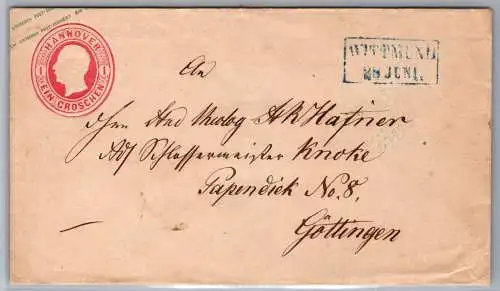 HANNOVER
1 1
EIN GROSCHEN
WITTMUND
28 JUNI.
An
Stud Theolog A R Hafner
Adr Schlossermeister Knoke
Papendiek No. 8.
Göttingen